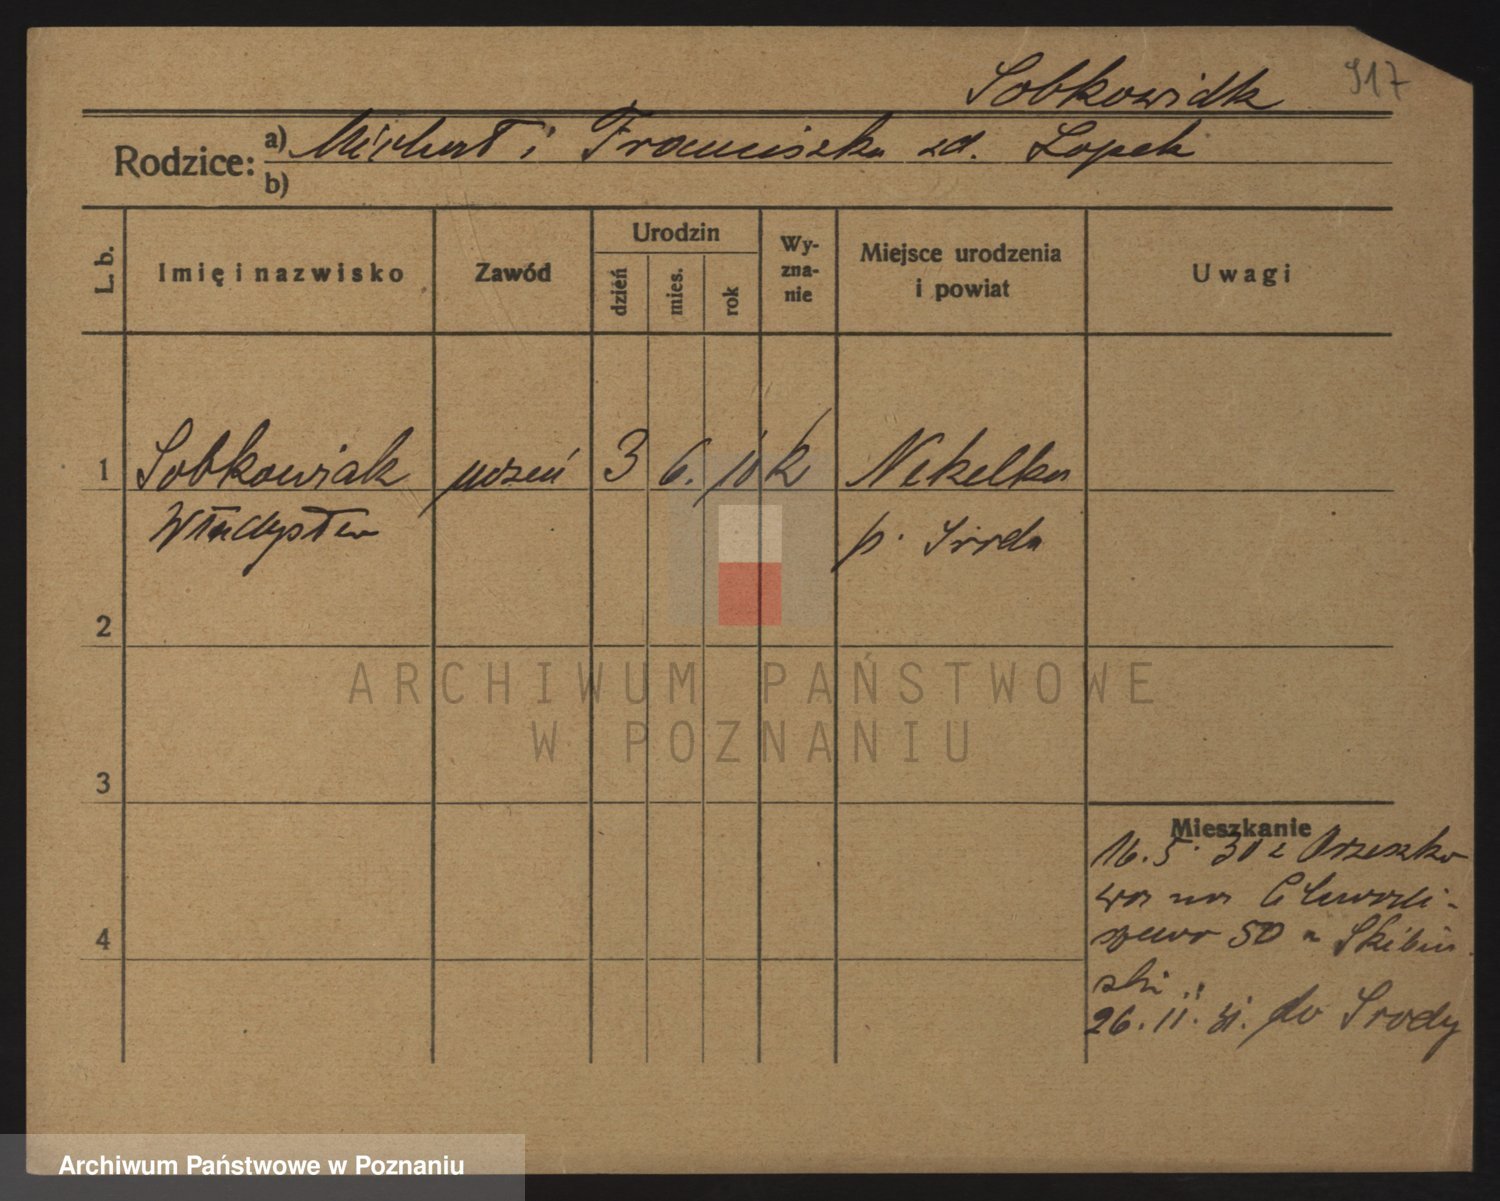 Sobkowiak
917
Rodzice: a) Michał i Franciszka zd. Łopek
b)
L. b.
Imię i nazwisko
Zawód
Urodzin
dzień
mies.
rok
Wy-
zna-
nie
Miejsce urodzenia
i powiat
Uwagi
1 Sobkowiak uczeń 3 6. 10 k Nekelka
Władysław p. Środa
2
3
4
Mieszkanie
16. 5. 30 z Orzeszko
wa na
50 Skibiń
ski
26. 11. 31. do Środy
ARCHIWUM PAŃSTWOWE
W POZNANIU
Archiwum Państwowe w Poznaniu